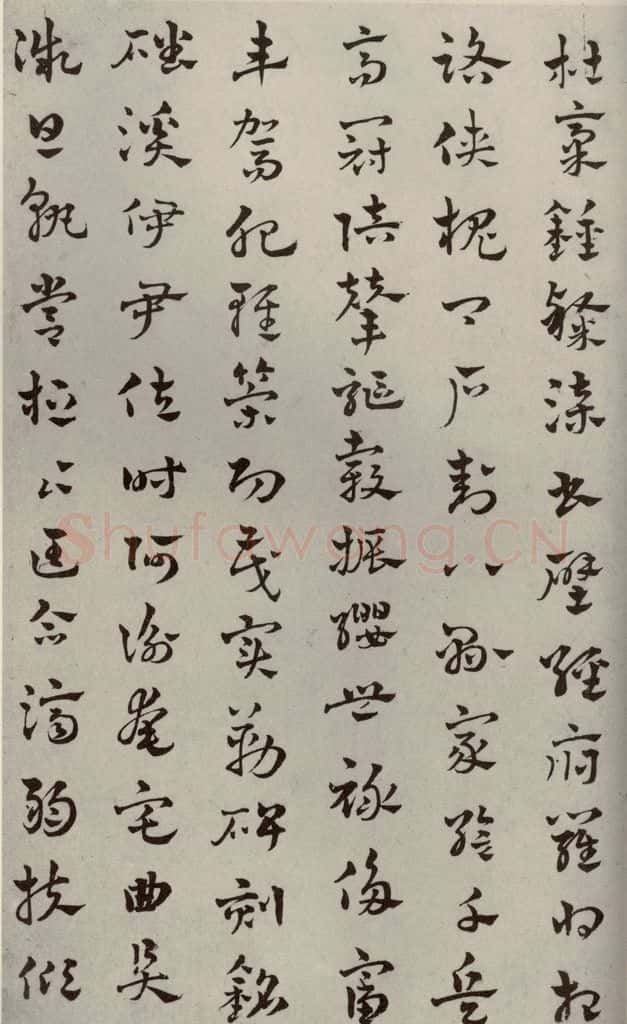 杜稾鍾隸漆書壁經府羅將相
路俠槐卿戶封八縣家給千兵
高冠陪輦驅轂振纓世祿侈富
車駕肥輕策功茂實勒碑刻銘
磻溪伊尹佐時阿衡奄宅曲阜
微旦孰營桓公匡合濟弱扶傾
Shufawang.CN